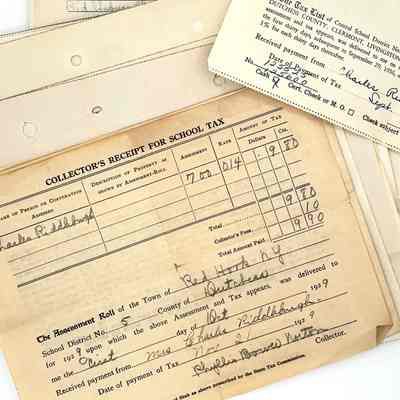 our Tax List of Central School District No
DUTCHESS COUNTY, CLERMONT, LIVINGSTON
assessment and tax appears, was delivered to me on
the first thirty days, subsequent to September 20, 1956,
1% for each thirty days thereafter.
Received payment from Charles
Date of Payment of Tax Sept
No.
Cash Cert. Check or M. O.
Check subject
COLLECTOR'S RECEIPT FOR SCHOOL TAX
NAME OF PERSON OR CORPORATION ASSESSED
DESCRIPTION OF PROPERTY AS SHOWN BY ASSESSMENT-ROLL
ASSESSMENT
RATE
AMOUNT OF TAX
Dollars Cts.
Charles Riddlburgh 700 .014 9.80
Total 9 80
Collector's Fees, 10
Total Amount Paid, 9 90
The Assessment Roll of the Town of Red Hook N.Y.
School District No. 5 County of Dutchess
for 1929 upon which the above Assessment and Tax appears, was delivered to
me the first day of Oct 1929
Received payment from Mrs Charles Riddlburgh
Date of payment of Tax Nov 2 1929
Phyllis Bower Norton Collector.
as prescribed by the State Tax Commission.